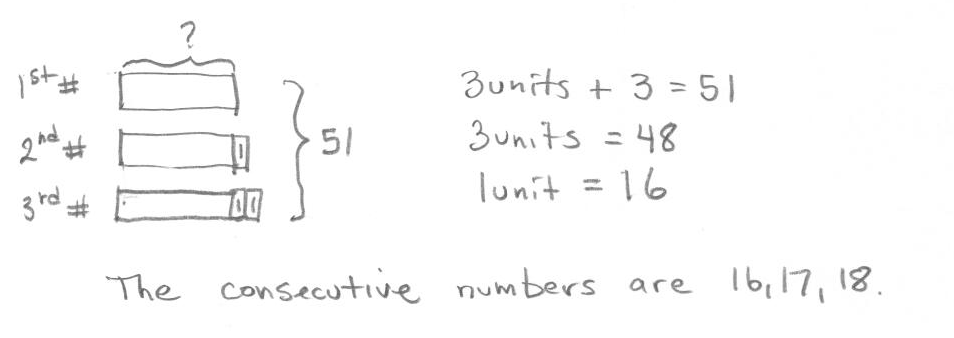 ?
1st #
2nd #
1
3rd #
1 1
51
3units + 3 = 51
3units = 48
1unit = 16
The consecutive numbers are 16, 17, 18.